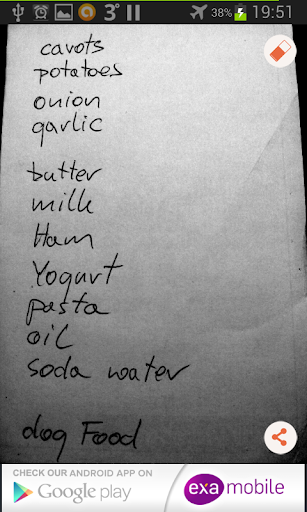 3°
38%
19:51
cavots
potatoes
onion
garlic
butter
milk
Ham
Yogurt
pasta
oil
soda water
dog Food
CHECK OUR ANDROID APP ON
Google play
exa mobile